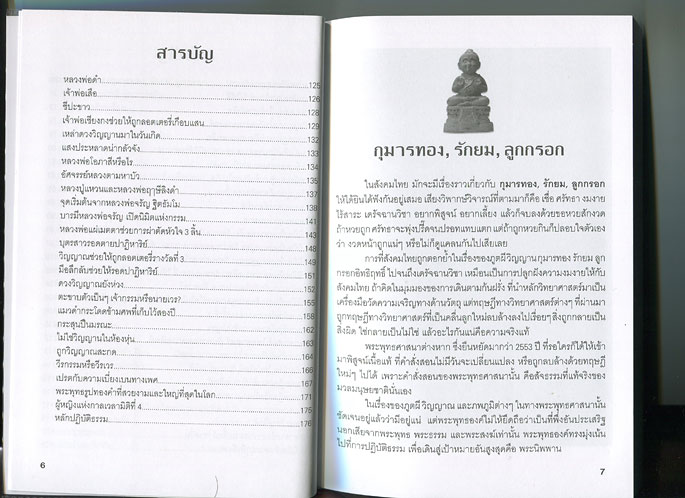 สารบัญ
หลวงพ่อดำ 125
เจ้าพ่อเสือ 126
ชีปะขาว 128
เจ้าพ่อเชียงกงช่วยให้ถูกลอตเตอรี่เกือบแสน 129
เหล่าดวงวิญญาณมาในวันเกิด 132
แสงประหลาดน่ากลัวจัง 133
หลวงพ่อโอภาสีหรือไร 134
อัศจรรย์หลวงตามหาบัว 135
หลวงปู่แหวนและหลวงพ่อฤๅษีลิงดำ 137
จุดเริ่มต้นจากหลวงพ่อจรัญ ฐิตธัมโม 138
บารมีหลวงพ่อจรัญ เปิดนิมิตแห่งกรรม 141
หลวงพ่อแผ่เมตตาช่วยการผ่าตัดหัวใจ 3 ลิ้น 143
บุตรสาวรอดตายปาฏิหาริย์
วิญญาณช่วยให้ถูกลอตเตอรี่รางวัลที่ 3
มือลึกลับช่วยให้รอดปาฏิหาริย์
ดวงวิญญาณยังห่วง
ตะขาบตัวเป็นๆ เจ้ากรรมหรือนายเวร?
แมวดำกระโดดข้ามศพที่เก็บไว้สองปี
กระสุนปืนมรณะ
ไม่ใช่วิญญาณในห้องหุ่น
ถูกวิญญาณสะกด
วีรกรรมหรือวีรเวร
เปรตกับความเบี่ยงเบนทางเพศ
พระพุทธรูปทองคำที่สวยงามและใหญ่ที่สุดในโลก 171
ผู้หญิงแห่งกาลเวลามิติที่ 4
หลักปฏิบัติธรรม
6
กุมารทอง, รักยม, ลูกกรอก
ในสังคมไทย มักจะมีเรื่องราวเกี่ยวกับ กุมารทอง, รักยม, ลูกกรอก
ให้ได้ยินได้ฟังกันอยู่เสมอ เสียงวิพากษ์วิจารณ์ที่ตามมาก็คือ เชื่อ ศรัทธา งมงาย
ไร้สาระ เดรัจฉานวิชา อยากพิสูจน์ อยากเลี้ยง แล้วก็จบลงด้วยขอหวยสักงวด
ถ้าหวยถูก ศรัทธาจะพุ่งปรี๊ดจนปรอทแทบแตก แต่ถ้าถูกหวยกินก็ปลอบใจตัวเอง
ว่า งวดหน้าถูกแน่ๆ หรือไม่ก็ดูแคลนกันไปเสียเลย
การที่สังคมไทยถูกตอกย้ำในเรื่องของภูตผีวิญญาณ กุมารทอง รักยม ลูก
กรอกอิทธิฤทธิ์ ไปจนถึงเดรัจฉานวิชา เหมือนเป็นการปลูกฝังความงมงายให้กับ
สังคมไทย ถ้าคิดในมุมมองของการเดินตามก้นฝรั่ง ที่นำหลักวิทยาศาสตร์มาเป็น
เครื่องมือวัดความเจริญทางด้านวัตถุ แต่ทฤษฎีทางวิทยาศาสตร์ต่างๆ ที่ผ่านมา
ถูกทฤษฎีทางวิทยาศาสตร์ที่เป็นคลื่นลูกใหม่ลบล้างลงไปเรื่อยๆ สิ่งถูกกลายเป็น
สิ่งผิด ใช่กลายเป็นไม่ใช่ แล้วอะไรกันแน่คือความจริงแท้
พระพุทธศาสนาต่างหาก ซึ่งยืนหยัดมากว่า 2553 ปี ที่รอใครก็ได้ให้เข้า
มาพิสูจน์เนื้อแท้ ที่คำสั่งสอนไม่มีวันจะเปลี่ยนแปลง หรือถูกลบล้างด้วยทฤษฎี
ใหม่ๆ ไปได้ เพราะคำสั่งสอนของพระพุทธศาสนานั้น คือสัจธรรมที่แท้จริงของ
มวลมนุษยชาตินั่นเอง
ในเรื่องของภูตผี วิญญาณ และภพภูมิต่างๆ ในทางพระพุทธศาสนานั้น
ชัดเจนอยู่แล้วว่ามีอยู่แน่ แต่พระพุทธองค์ไม่ให้ยึดถือว่าเป็นที่พึ่งอันประเสริฐ
นอกเสียจากพระพุทธ พระธรรม และพระสงฆ์เท่านั้น พระพุทธองค์ทรงมุ่งเน้น
ไปที่การปฏิบัติธรรม เพื่อเดินสู่เป้าหมายอันสูงสุดคือ พระนิพพาน
7